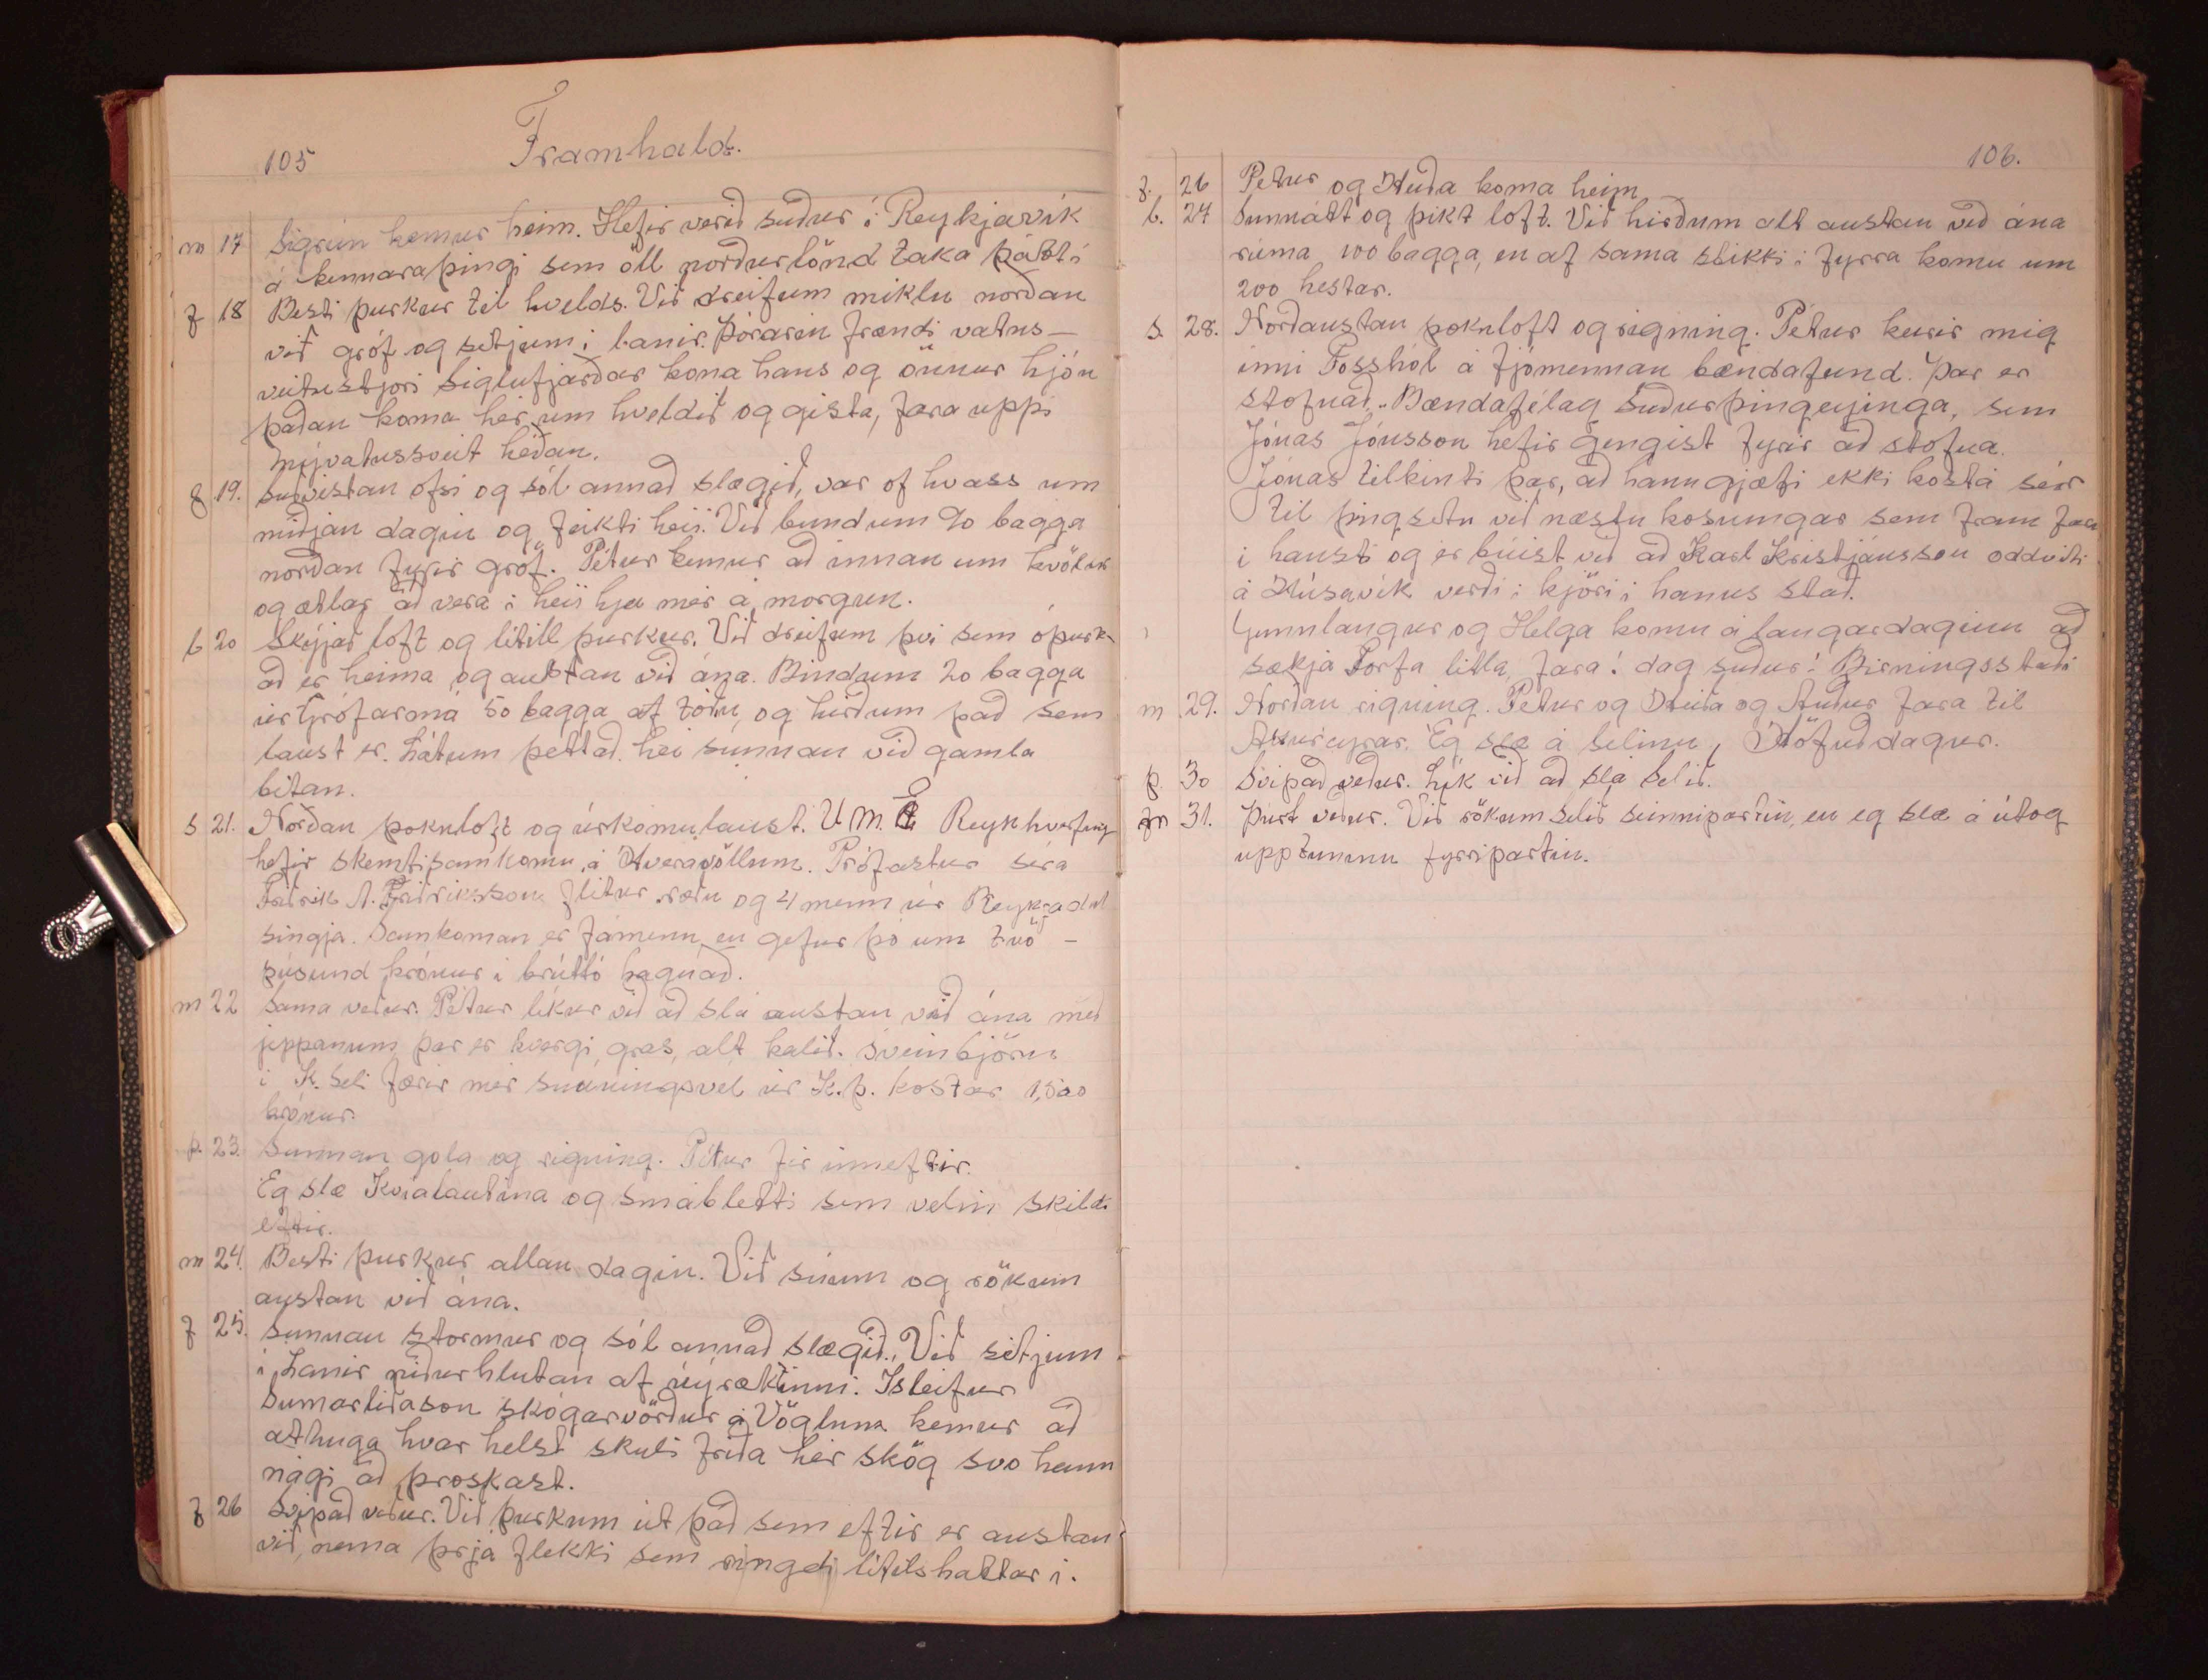 105
Framhald.
m 17 Sigrún kemur heim. Hefir verid sudur í Reykjavík
á kennaraþingi sem öll nordurlönd taka þátt í
f 18 Besti þurkur til kvelds. Vid dreifum miklu nordan
vid gróf og setjum í lanir. Þórarin frændi vatns-
veitustjori Siglufjardar kona hans og önnur hjón
þadan koma hér um kveldid og gista, fara uppi
Mývatnssveit hédan.
f 19. Sudvistan ofsi og sól annad slægid, var of hvass um
midjan dagin og feikti heii. Vid bundum 90 bagga
nordan fyrir gróf. Pétur kemur ad innan um kvöldr
og ætlar ad vera í heii hja mér á morgun.
l 20 Skýjad loft og lítill þurkur. Vid dreifum því sem óþurk-
ad er heima og austan vid ána. Bindum 20 bagga
úr Grófarmá 50 bagga af tödu og hirdum þad sem
laust er. Látum þettad hei sunnan vid gamla
bitan.
s 21. Nordan þokuloft og úrkomulaust. U.M.F. Reykhverfing
hefir skemtisamkomu á Hveravöllum. Prófastur séra
Fridrik A. Fridriksson flitur rædu og 4 menn úr Reykjadal
singja. Samkoman er fámenn en gefur þó um tvö-
þúsund krónur í brúttó hagnad.
m 22 Sama vedur. Pétur líkur vid ad slá austan vid ána med
jeppanum þar er hvergi gras, alt kalid. Sveinbjörn
í K. Seli færir mér snúningsvél úr K.Þ. kostar 1,500
krónur.
þ. 23. Sunnan gola og rigning. Pétur fir inneftir.
Eg slæ Kvialautina og smábletti sem velin skildi
eftir.
m 24. Besti þurkur allan dagin. Vid snúum og rökum
austan vid ána.
f 25. Sunnan stormur og sól annad slægid. Vid setjum
í Lanir nidurhlutan af nýræktinni. Isleifur
Sumarlidason skógarvördur á Vöglum kemur ad
athuga hvar helst skuli frida hér skóg svo hann
nági ad þroskast.
f 26 Svipad vedur. Vid þurkum út þad sem eftir er austan
vid, nema þrjá flekki sem ringdi lítilsháttar í.
106.
f. 26 Petur og Huda koma heim
l. 27 Sunnátt og þikt loft. Vid hirdum alt austan vid ána
rúma 100 bagga, en af sama stikki í fyrra komu um
200 hestar.
s. 28. Nordaustan þokuloft og rigning. Pétur keirir mig
inni Fosshól á fjömennan bændafund. Þar er
stofnad „Bændafélag Sudurþingeyinga, sem
Jónas Jónsson hefir gengist fyrir ad stofna.
Jónas tilkinti þar, ad hann gjæfi ekki kosta sér
til þingsetu vid næstu kosningar sem fram fara
í haust og er búist vid ad Karl Kristjánsson oddviti
á Húsavík verdi í kjöri í hanns stad.
Gunnlaugur og Helga komu á laugardaginn ad
sækja Torfa litla, fara í dag sudur í Birningsstadi
m 29. Nordan rigning. Petur og Huda og Audur fara til
Akureyrar. Eg slæ á Selinu, Höfuddagur.
þ. 30 Svipad vedur. Lík vid ad slá Selid.
m 31. Þurt vedur. Vid rökum Selid seinnipartin, en eg slæ á útog
upptuninu fyrripartin.